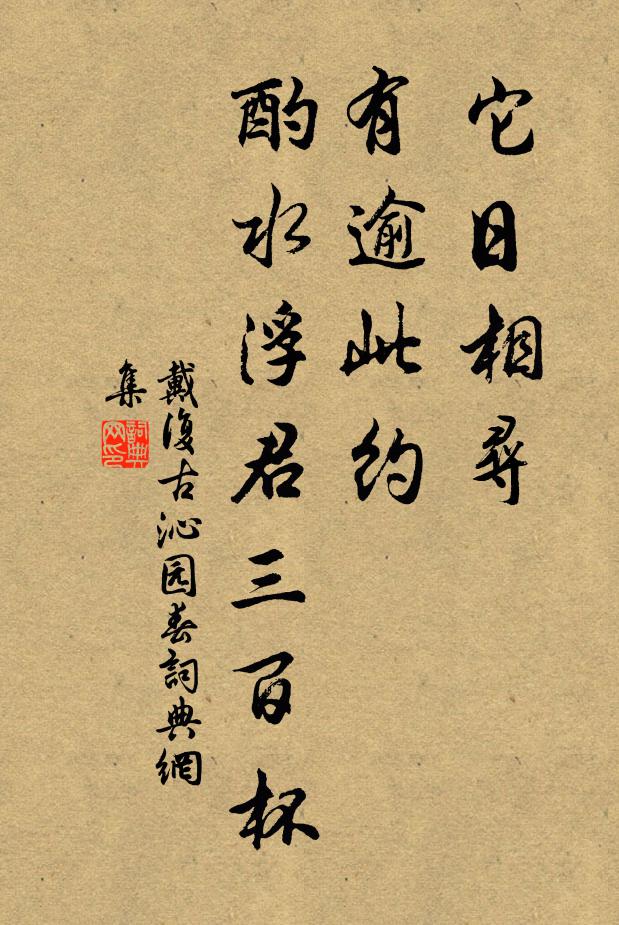 它日相尋
有逾此約
酌水浮君三百杯
戴復古沁园春詞典網
集
詞典
网印